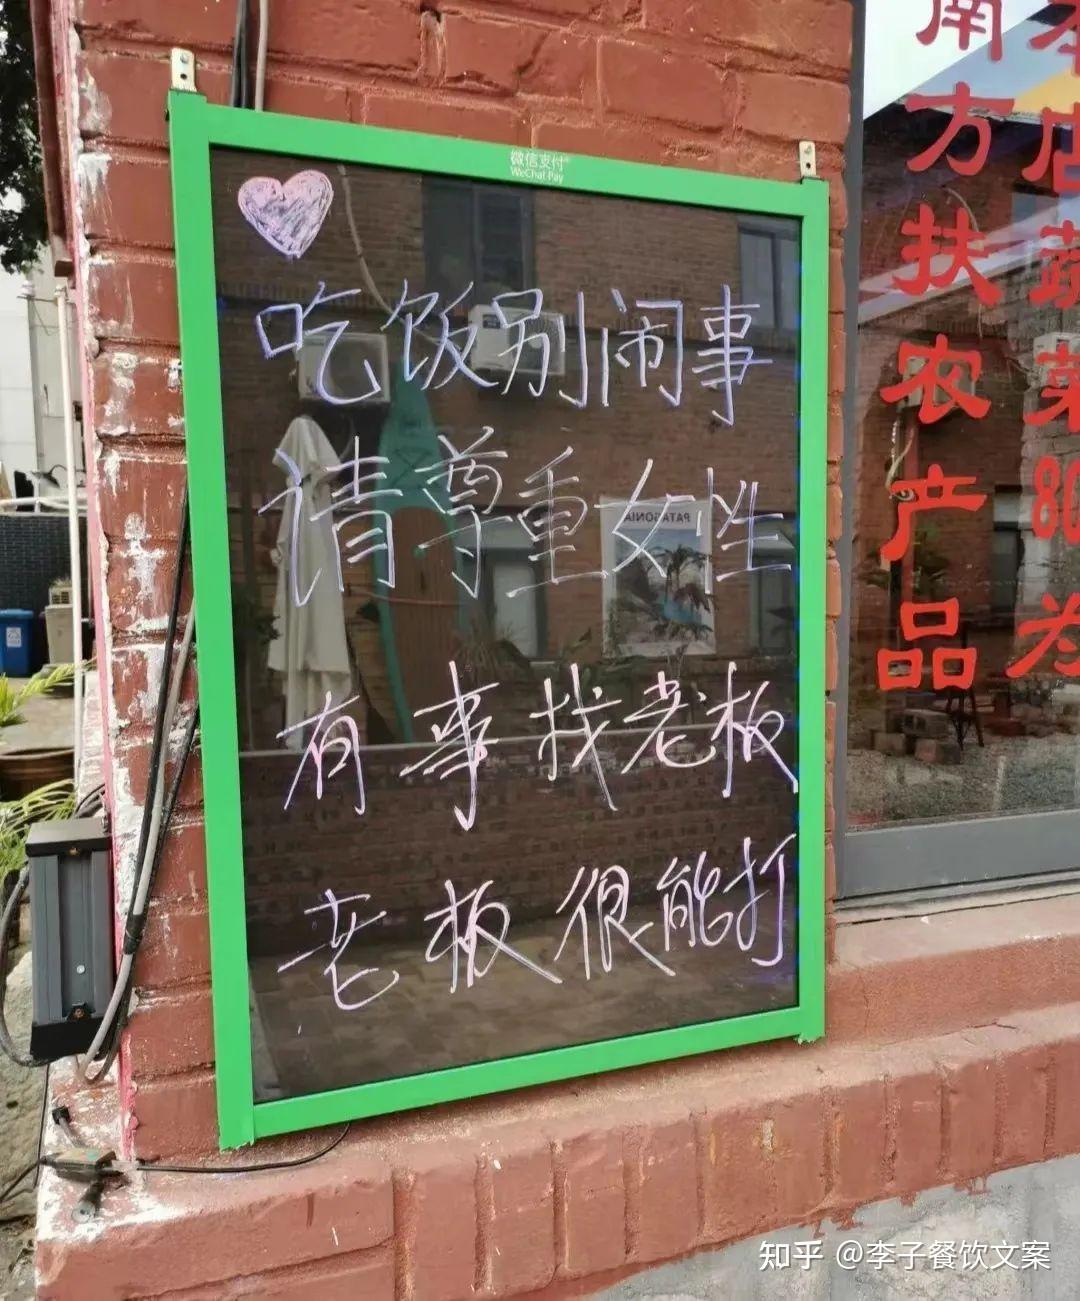 微信支付
WeChat Pay
吃饭别闹事
请尊重女性
有事找老板
老板很能打
PATAGONIA
本店蔬菜80
南方扶农产品
知乎 @李子餐饮文案